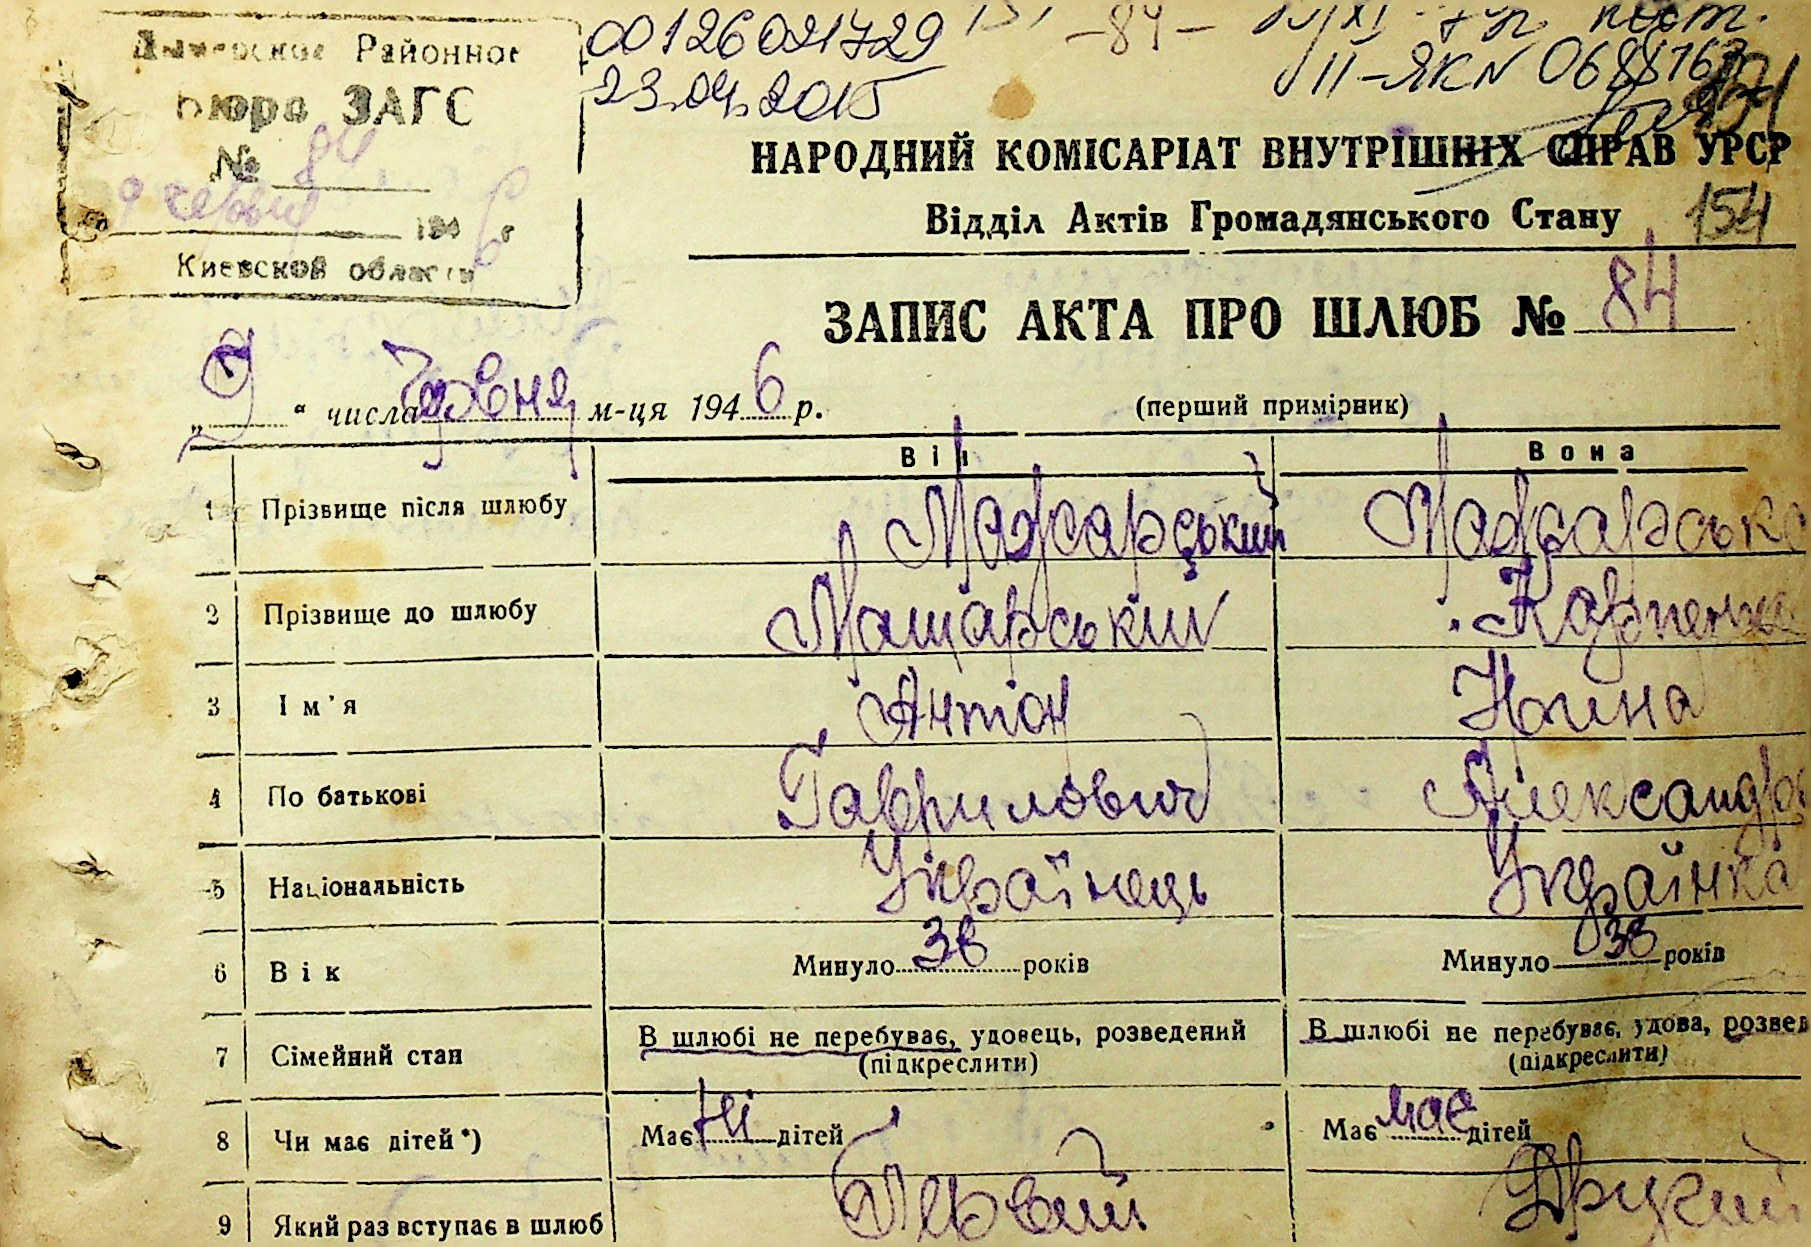 Дымерское Районное
Бюро ЗАГС
№ 84
9 червня 1946 г
Киевской области
00126021729
23.04.2015
-84-
II-ЯК № 0688163
154
НАРОДНИЙ КОМІСАРІАТ ВНУТРІШНІХ СПРАВ УРСР
Відділ Актів Громадянського Стану
154
ЗАПИС АКТА ПРО ШЛЮБ № 84
„ 9 “ числа червня м-ця 1946 р.
(перший примірник)
Він Вона
1 Прізвище після шлюбу Мажарський Мажарська
2 Прізвище до шлюбу Мащарський Карпенко
3 Ім'я Антон Ніна
4 По батькові Гаврилович Александров
5 Національність Українець Українка
6 Вік Минуло 38 років Минуло 38 років
7 Сімейний стан В шлюбі не перебуває, удовець, розведений В шлюбі не перебуває, удова, розвед
(підкреслити) (підкреслити)
8 Чи має дітей*) Має ні дітей Має має дітей
9 Який раз вступає в шлюб Первий Другий